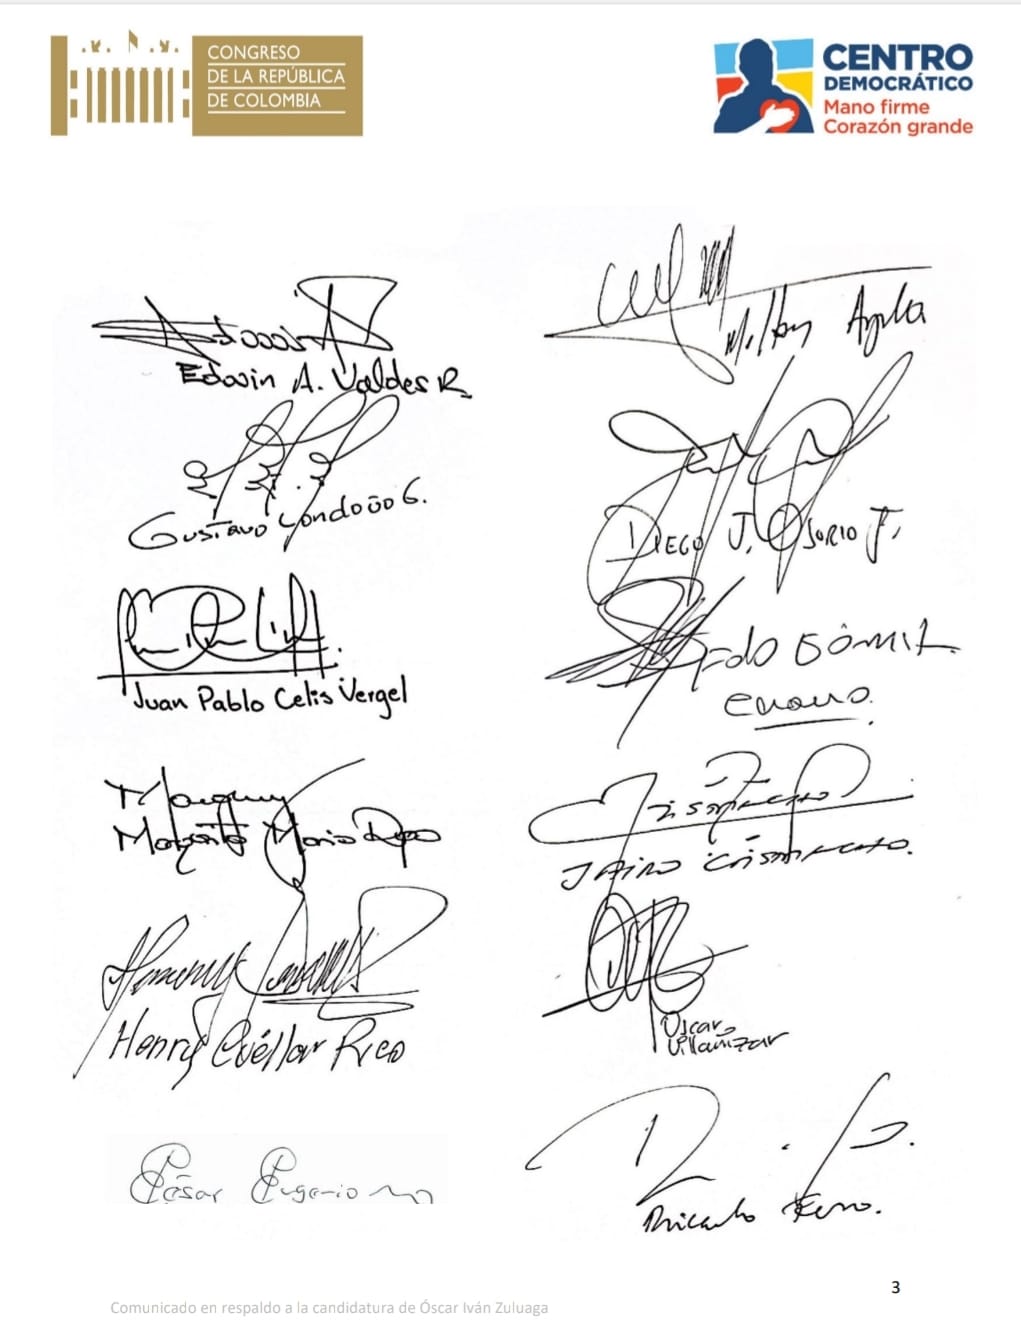 CONGRESO
DE LA REPÚBLICA
DE COLOMBIA
CENTRO
DEMOCRÁTICO
Mano firme
Corazón grande
Edwin A. Valdes R.
Milton Angulo
Gustavo Londoño G.
DIEGO J. OSORIO J.
Juan Pablo Celis Vergel
Margarita María
JAIRO CRISTANCHO.
Henry Cuéllar Rico
Oscar
Villamizar
César Eugenio
Ricardo
3
Comunicado en respaldo a la candidatura de Óscar Iván Zuluaga